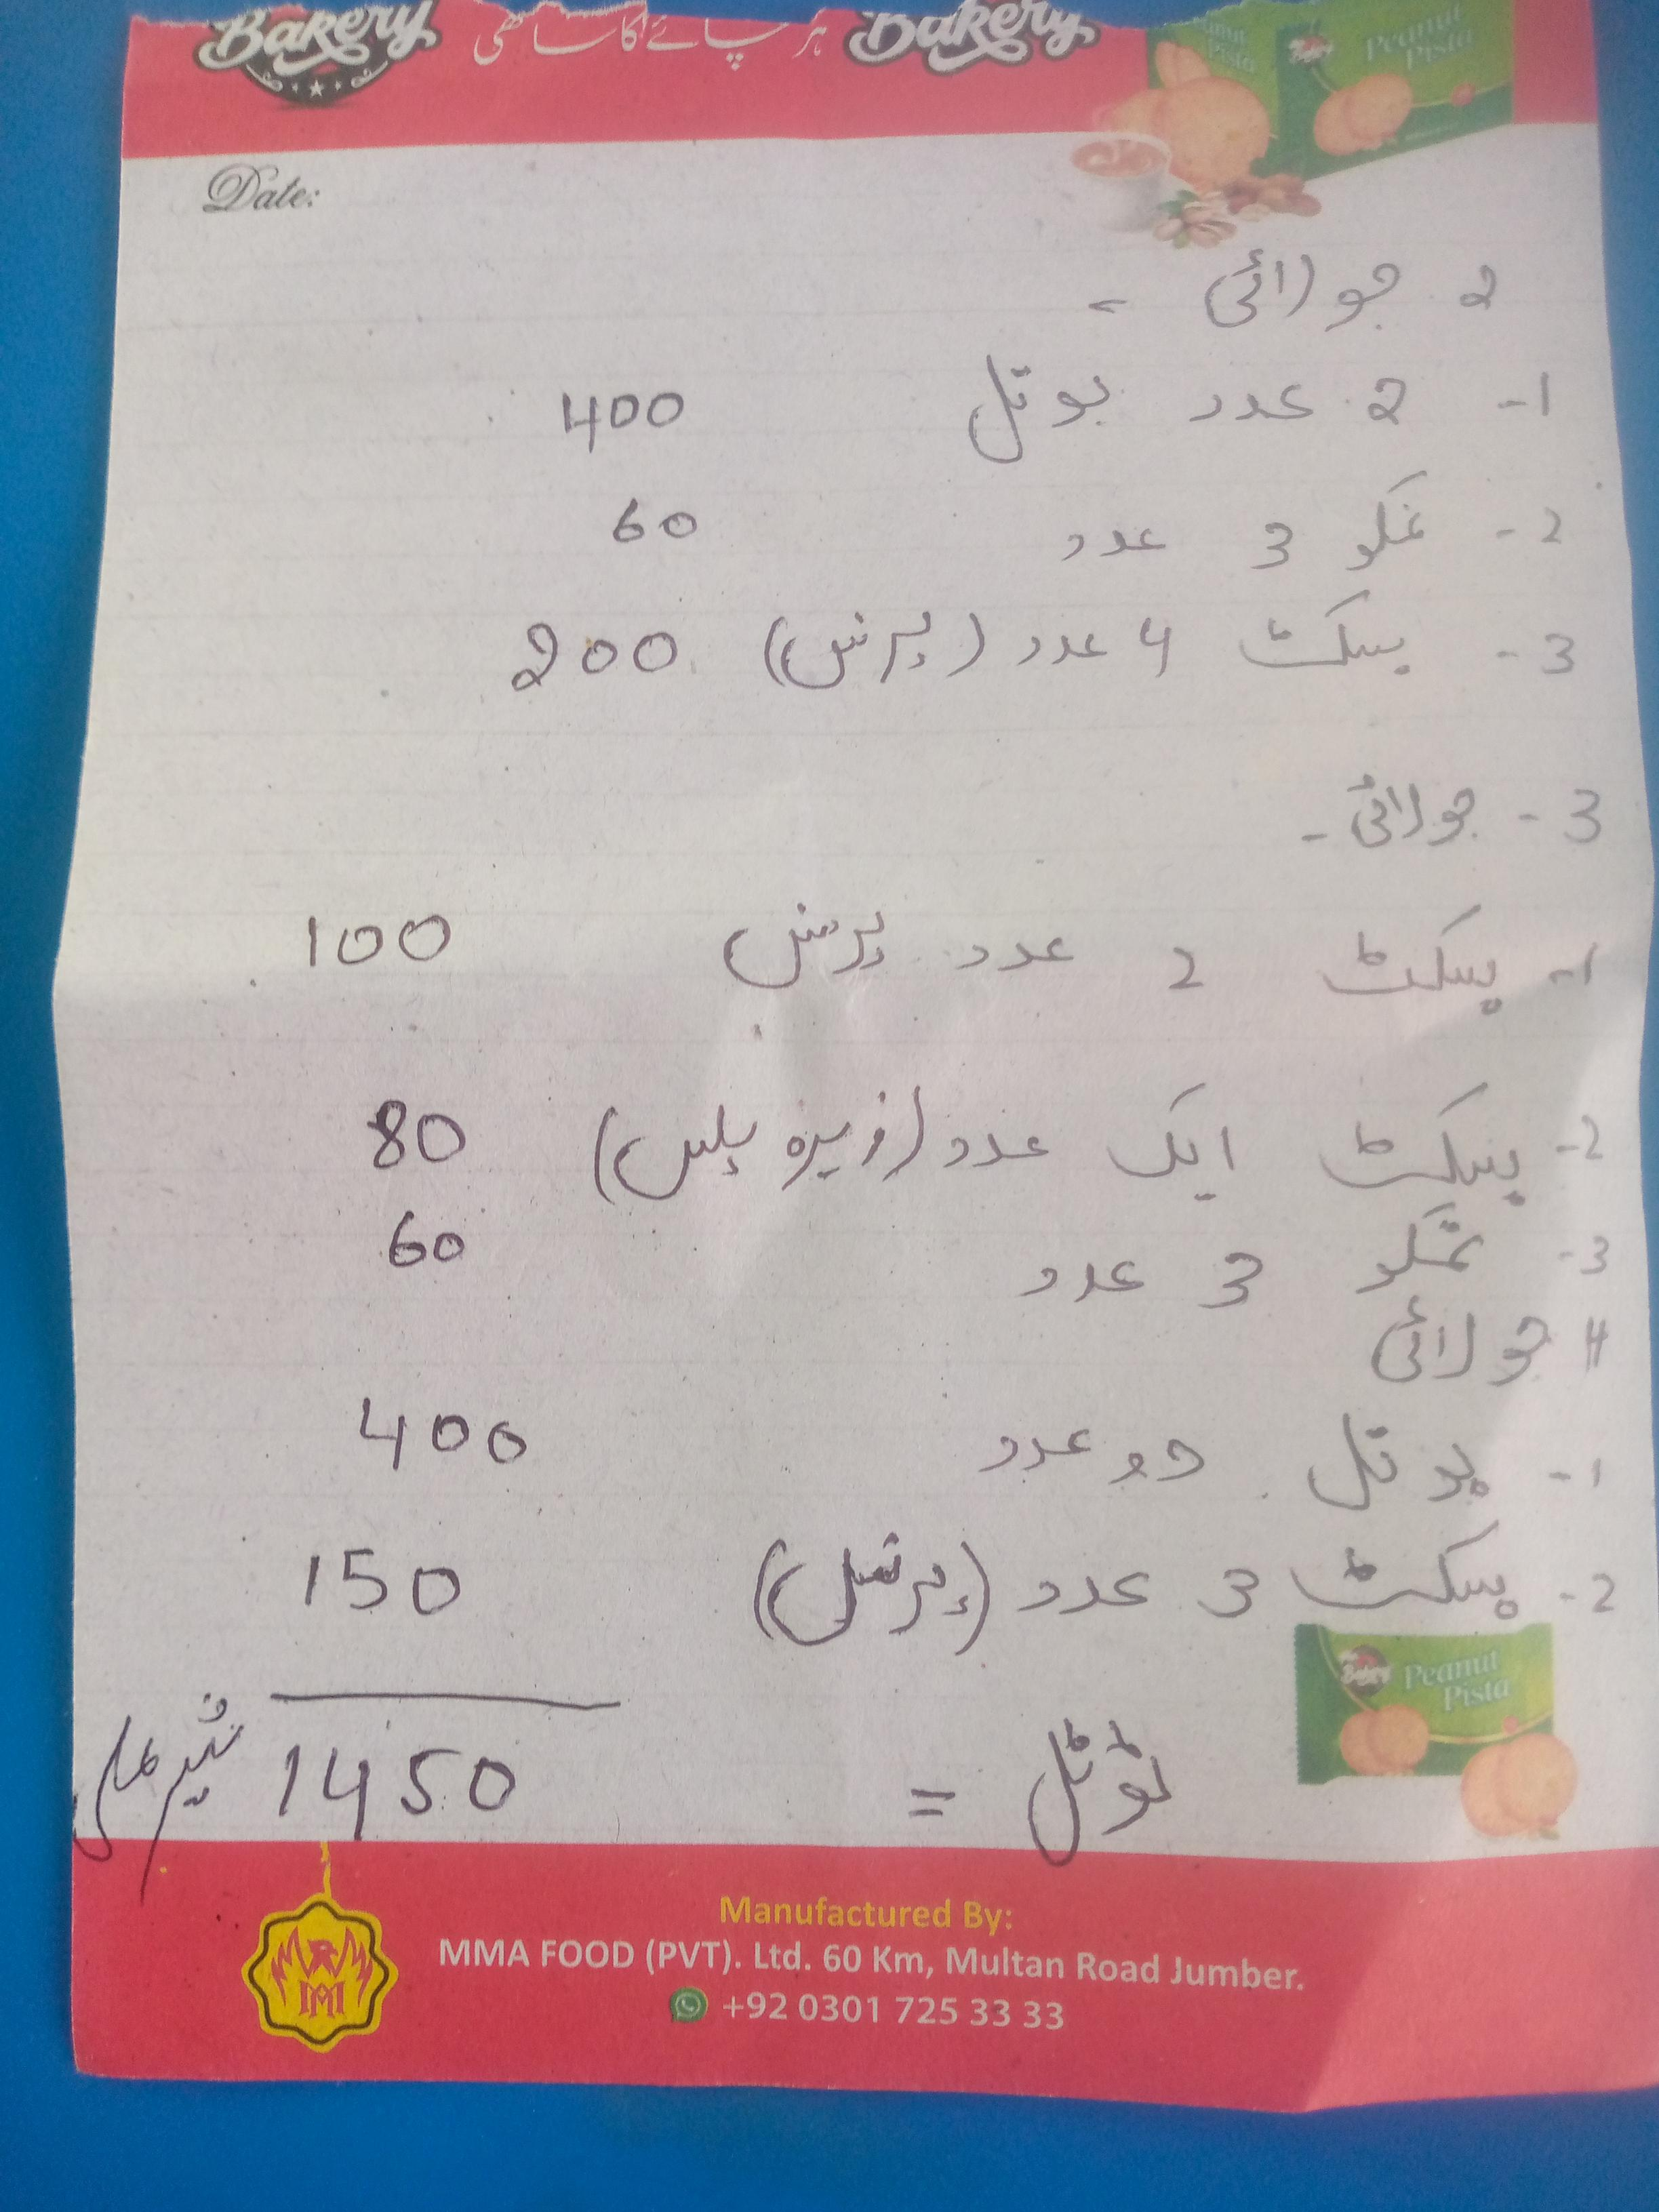 Bakery ہر چائے کا ساتھی Bakery
Peanut Pista
Date:
2 جولائی -
1- 2 عدد بوتل 400
2- نمکو 3 عدد 60
3- بسکٹ 4 عدد (پرنس) 200
3 - جولائی -
1- بسکٹ 2 عدد پرنس 100
2- بسکٹ ایک عدد (زیرہ پلس) 80
3- نمکو 3 عدد 60
4 جولائی
1- بوتل دو عدد 400
2- بسکٹ 3 عدد (پرنس) 150
Bakery Peanut Pista
ٹوٹل = 1450
Manufactured By:
MMA FOOD (PVT). Ltd. 60 Km, Multan Road Jumber.
+92 0301 725 33 33